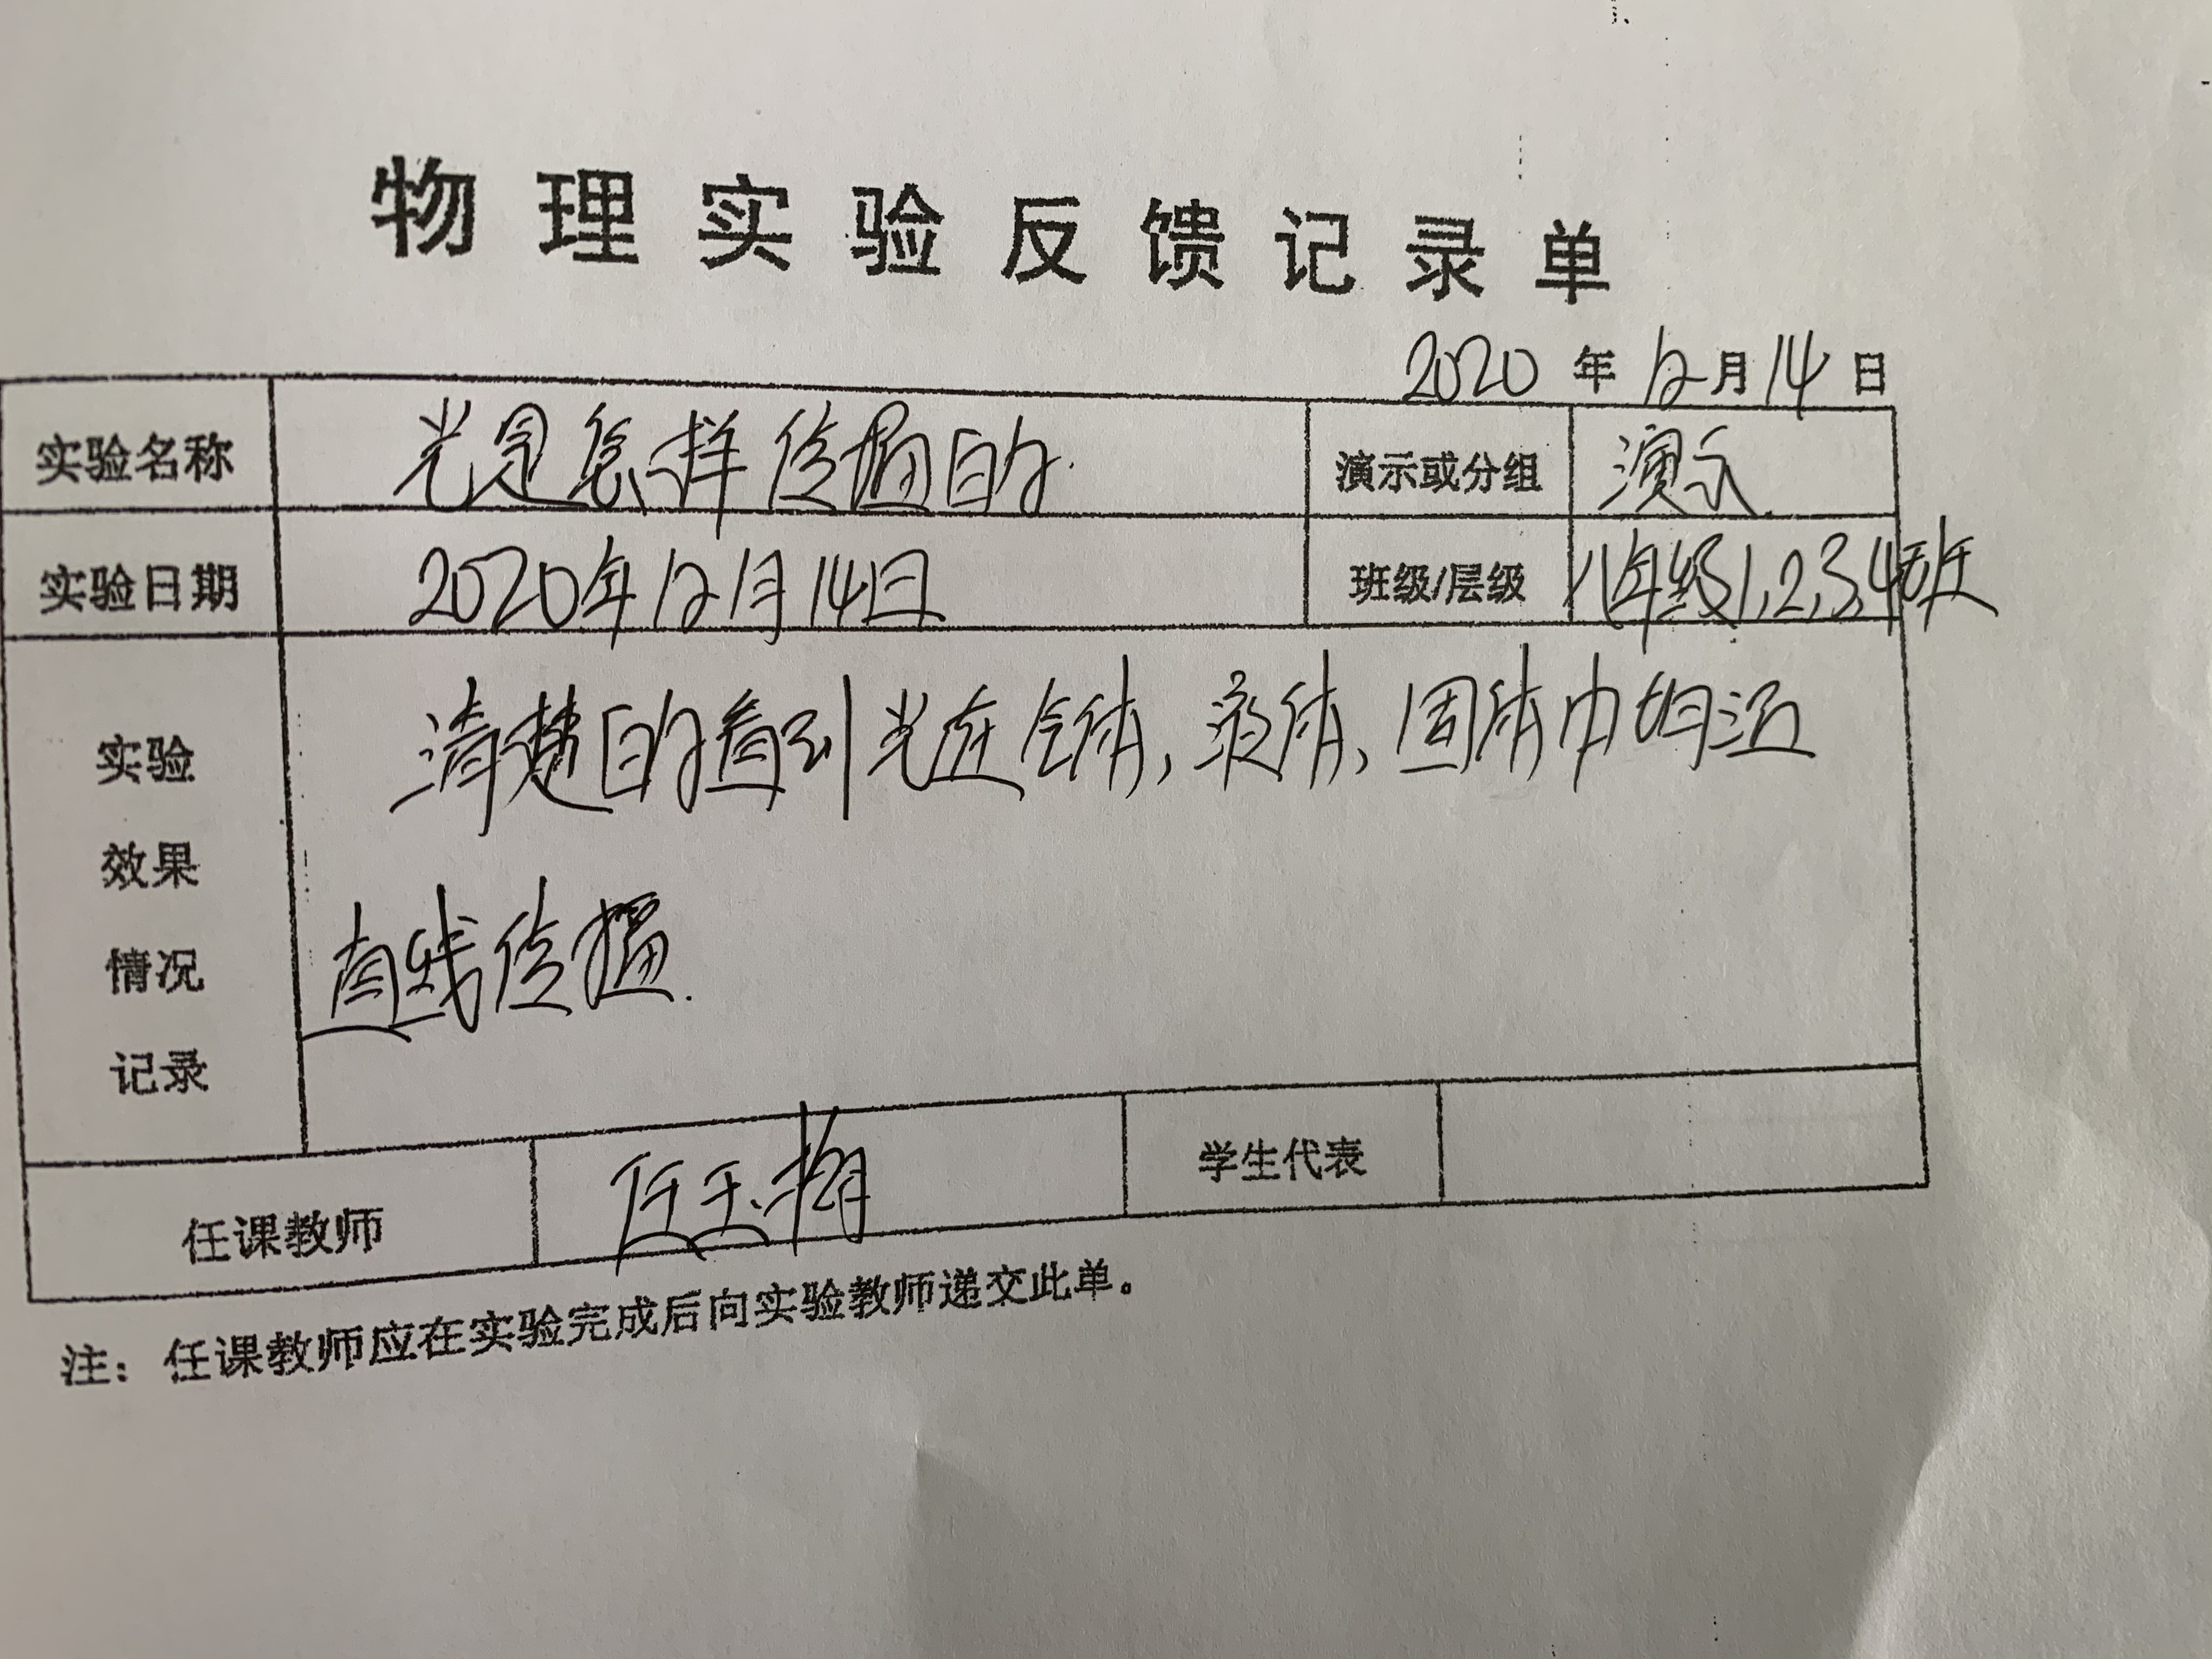 物理实验反馈记录单
2020年12月14日
实验名称 光是怎样传播的. 演示或分组 演示.
实验日期 2020年12月14日 班级/层级 八年级1,2,3,4班
实验
效果
情况
记录
清楚的看到光在气体,液体,固体中如沿
直线传播.
任课教师 任玉梅 学生代表
注：任课教师应在实验完成后向实验教师递交此单。